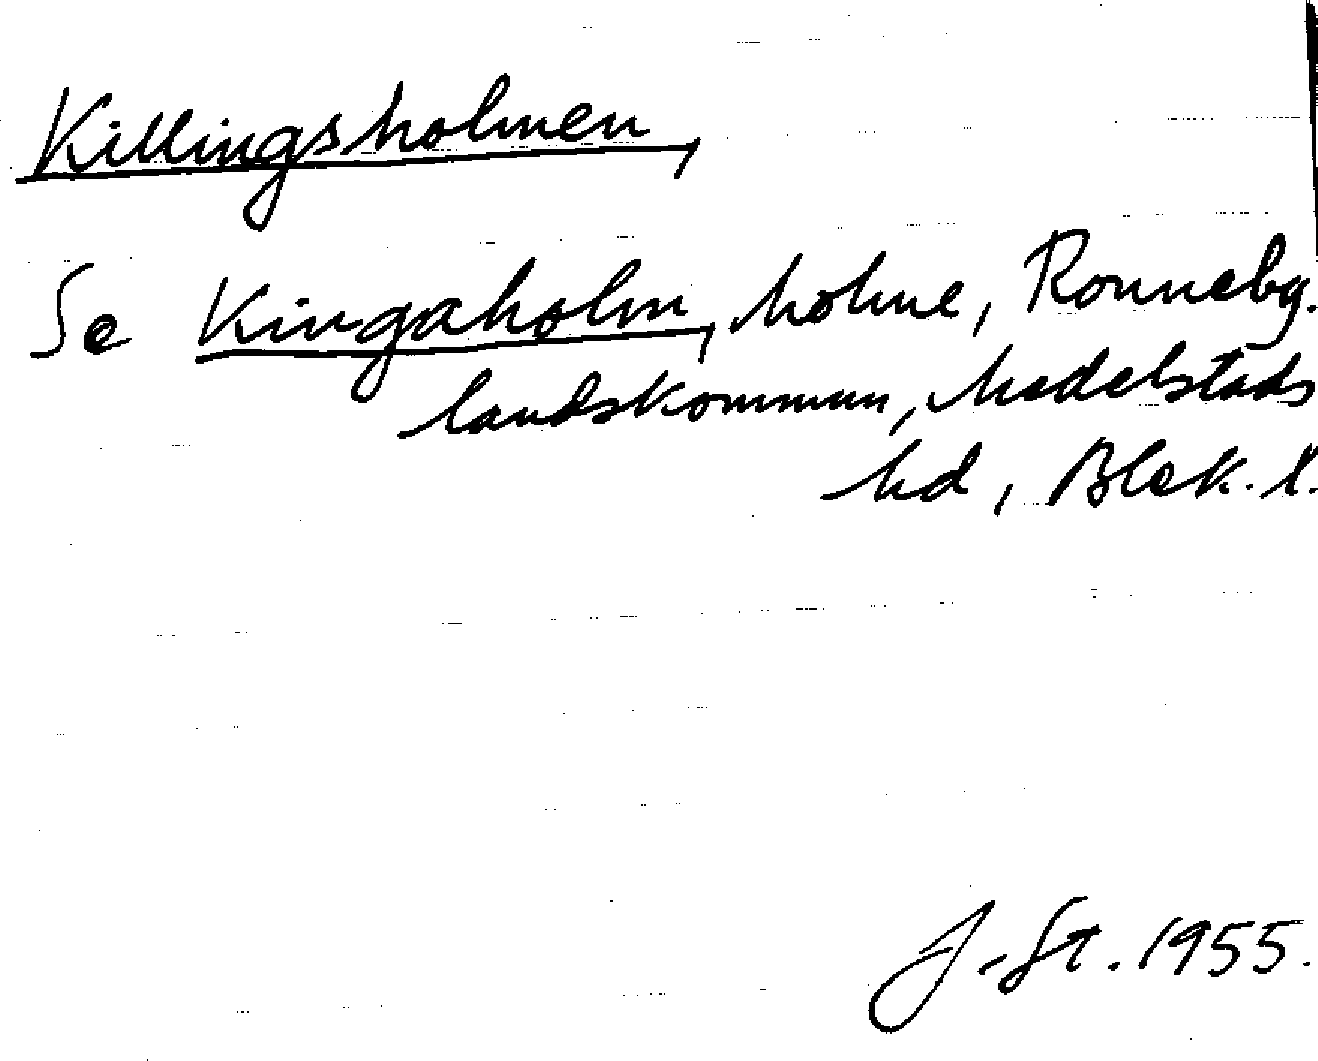 Killingsholmen,
Se Kingaholm, holme, Ronneby.
landskommun, Medelstads
hd, Blek. l.
J-St. 1955.